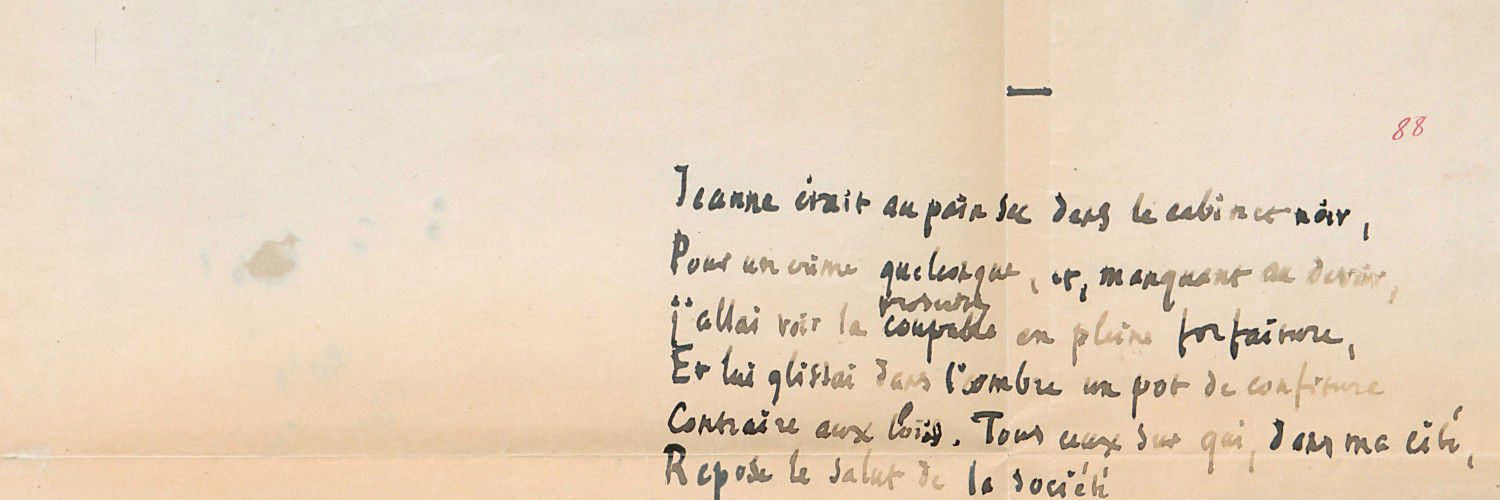 88
Jeanne était au pain sec dans le cabinet noir,
Pour un crime quelconque, et, manquant au devoir,
proscrite
J'allai voir la coupable en pleine forfaiture,
Et lui glissai dans l'ombre un pot de confiture
Contraire aux lois. Tous ceux sur qui, dans ma cité,
Repose le salut de la société